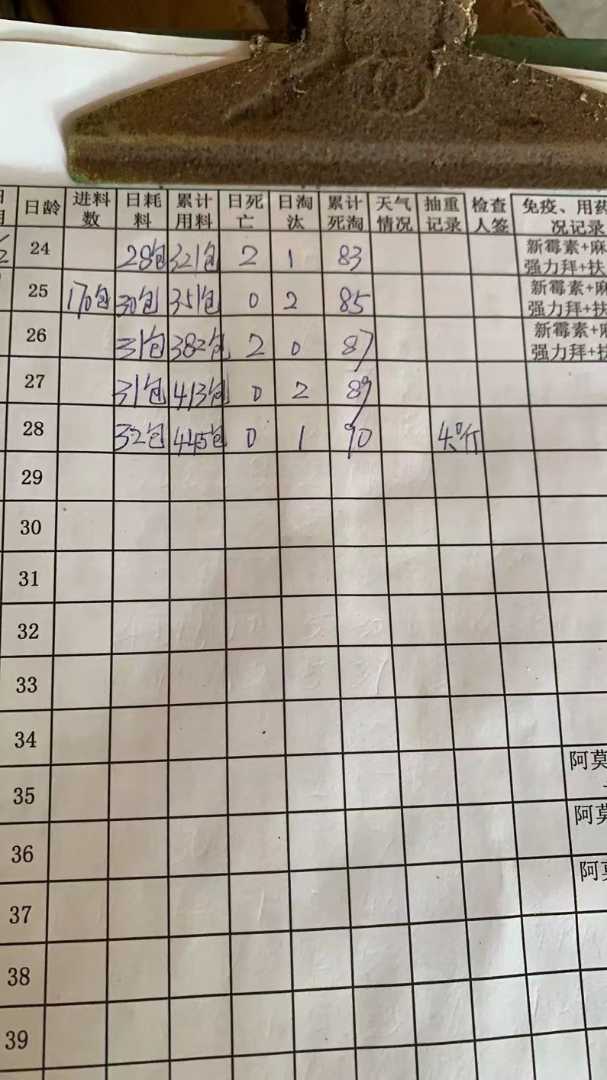 日龄 进料数 日耗料 累计用料 日死亡 日淘汰 累计死淘 天气情况 抽重记录 检查人签 免疫、用药 况记录
24 28包 321包 2 1 83 新霉素+麻 强力拜+扶
25 170包 30包 351包 0 2 85 新霉素+麻 强力拜+扶
26 31包 382包 2 0 87 新霉素+麻 强力拜+扶
27 31包 413包 0 2 89
28 32包 445包 0 1 90
29
30
31
32
33
34
35 阿莫
36 阿莫
37 阿莫
38
39